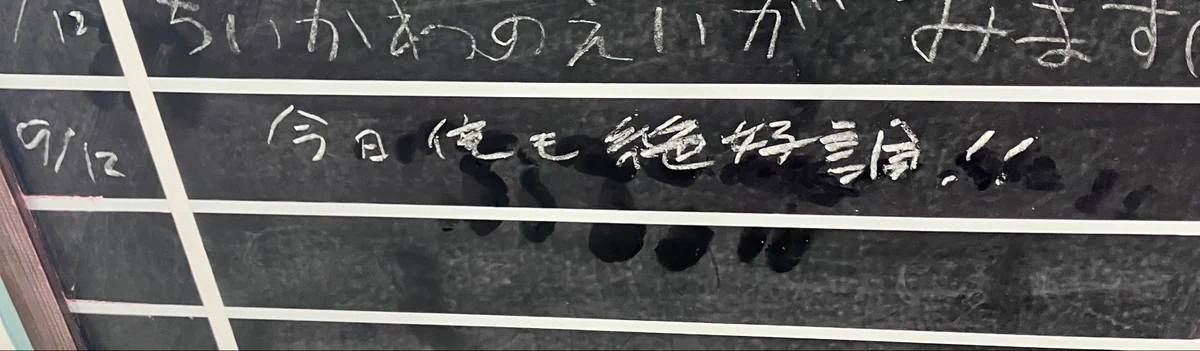 /12 ちいかわのえいが みます(
9/12 今日俺も絶好調!!